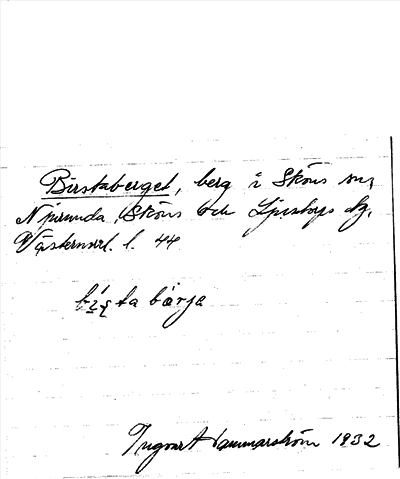 Birstaberget, berg i Sköns sn,
Njurunda, Sköns och Ljustorps tg,
Västernorrl. l. 44
bi̱s̨ta bärja
Ingvar Hammarström 1932